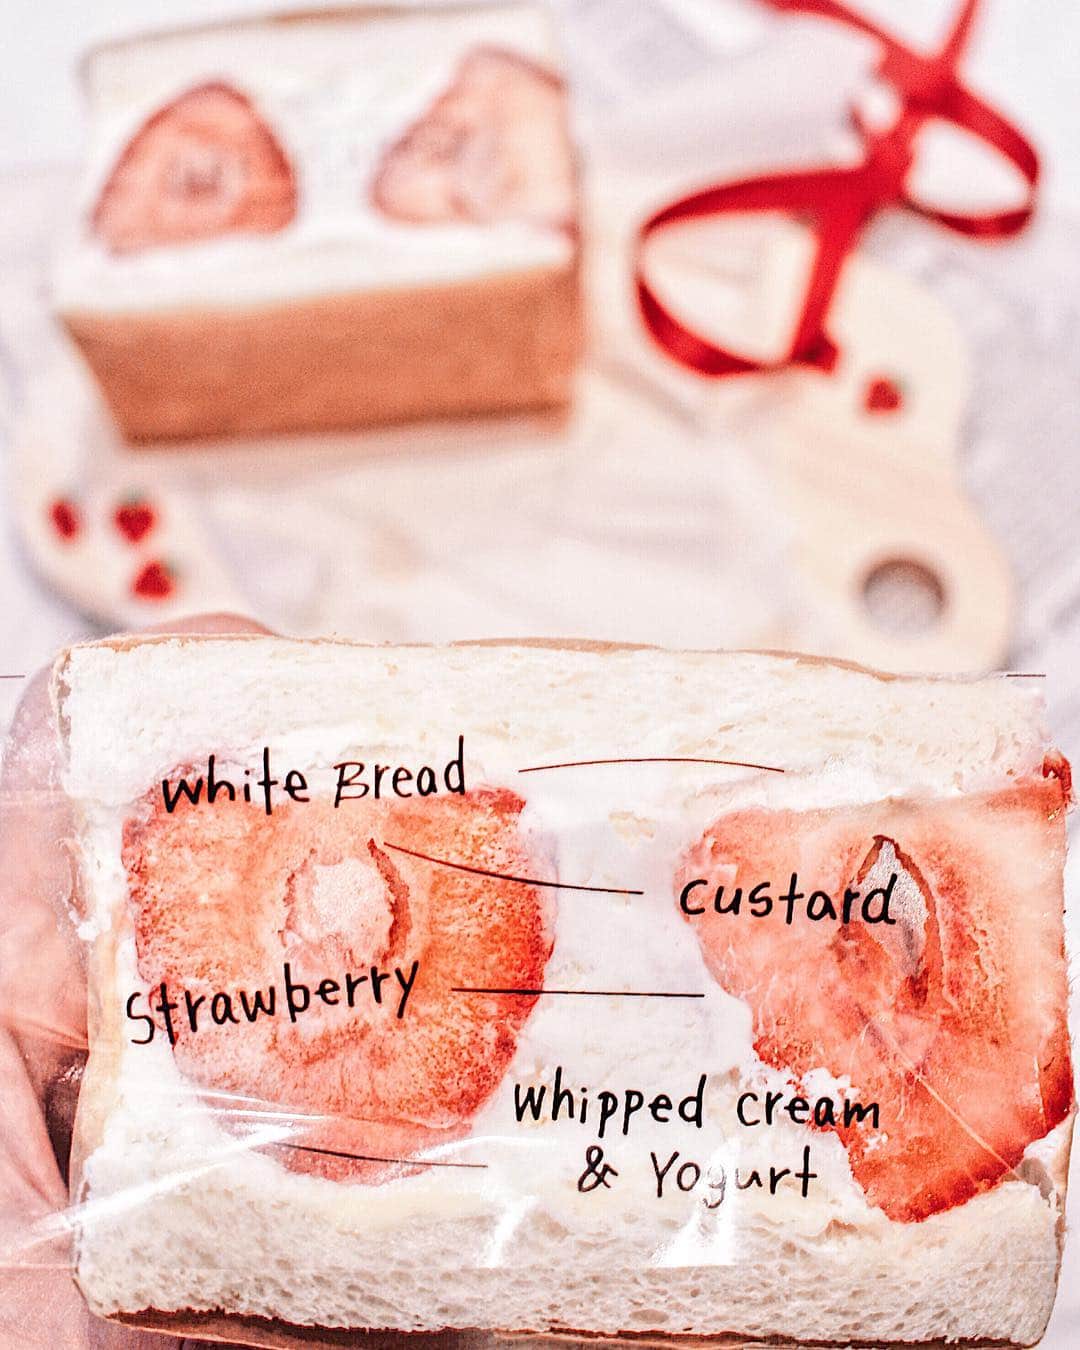 white Bread
custard
strawberry
whipped cream
& Yogurt